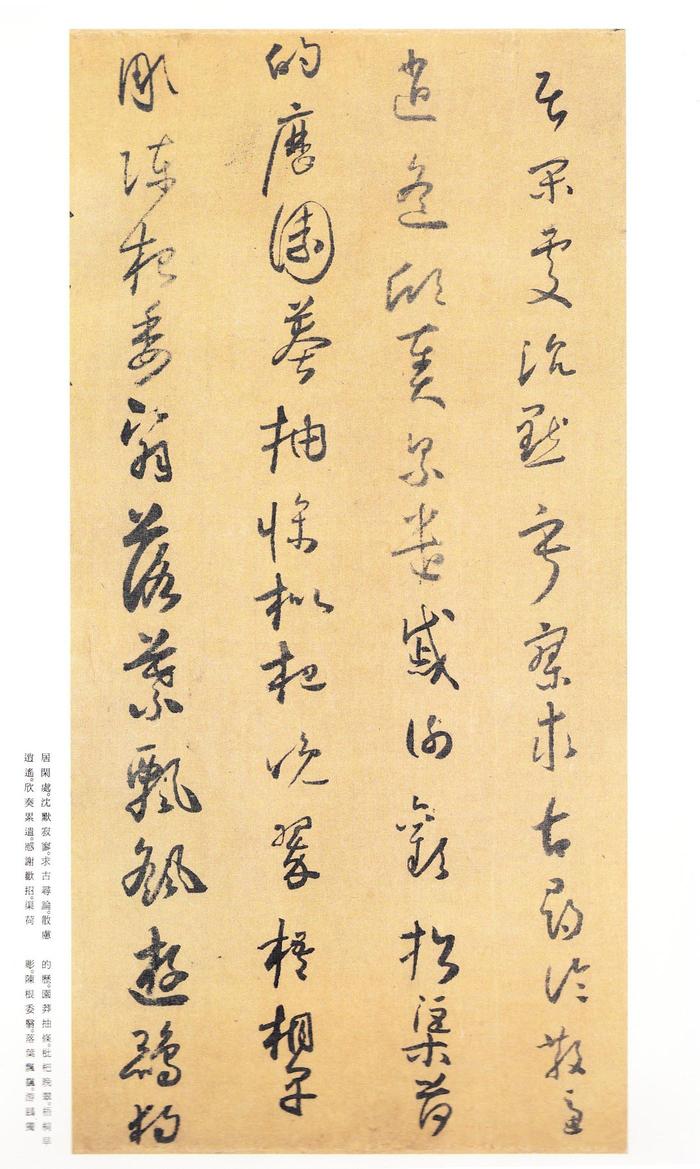 居閑處沈默寂寥求古尋論散慮
逍遙欣奏累遣慼謝歡招渠荷
的歷園莽抽條枇杷晚翠梧桐早
彫陳根委翳落葉飄颻遊鵾獨
居閑處。沈默寂寥。求古尋論。散慮
逍遙。欣奏累遣。慼謝歡招。渠荷
的歷。園莽抽條。枇杷晚翠。梧桐早
彫。陳根委翳。落葉飄颻。遊鵾獨